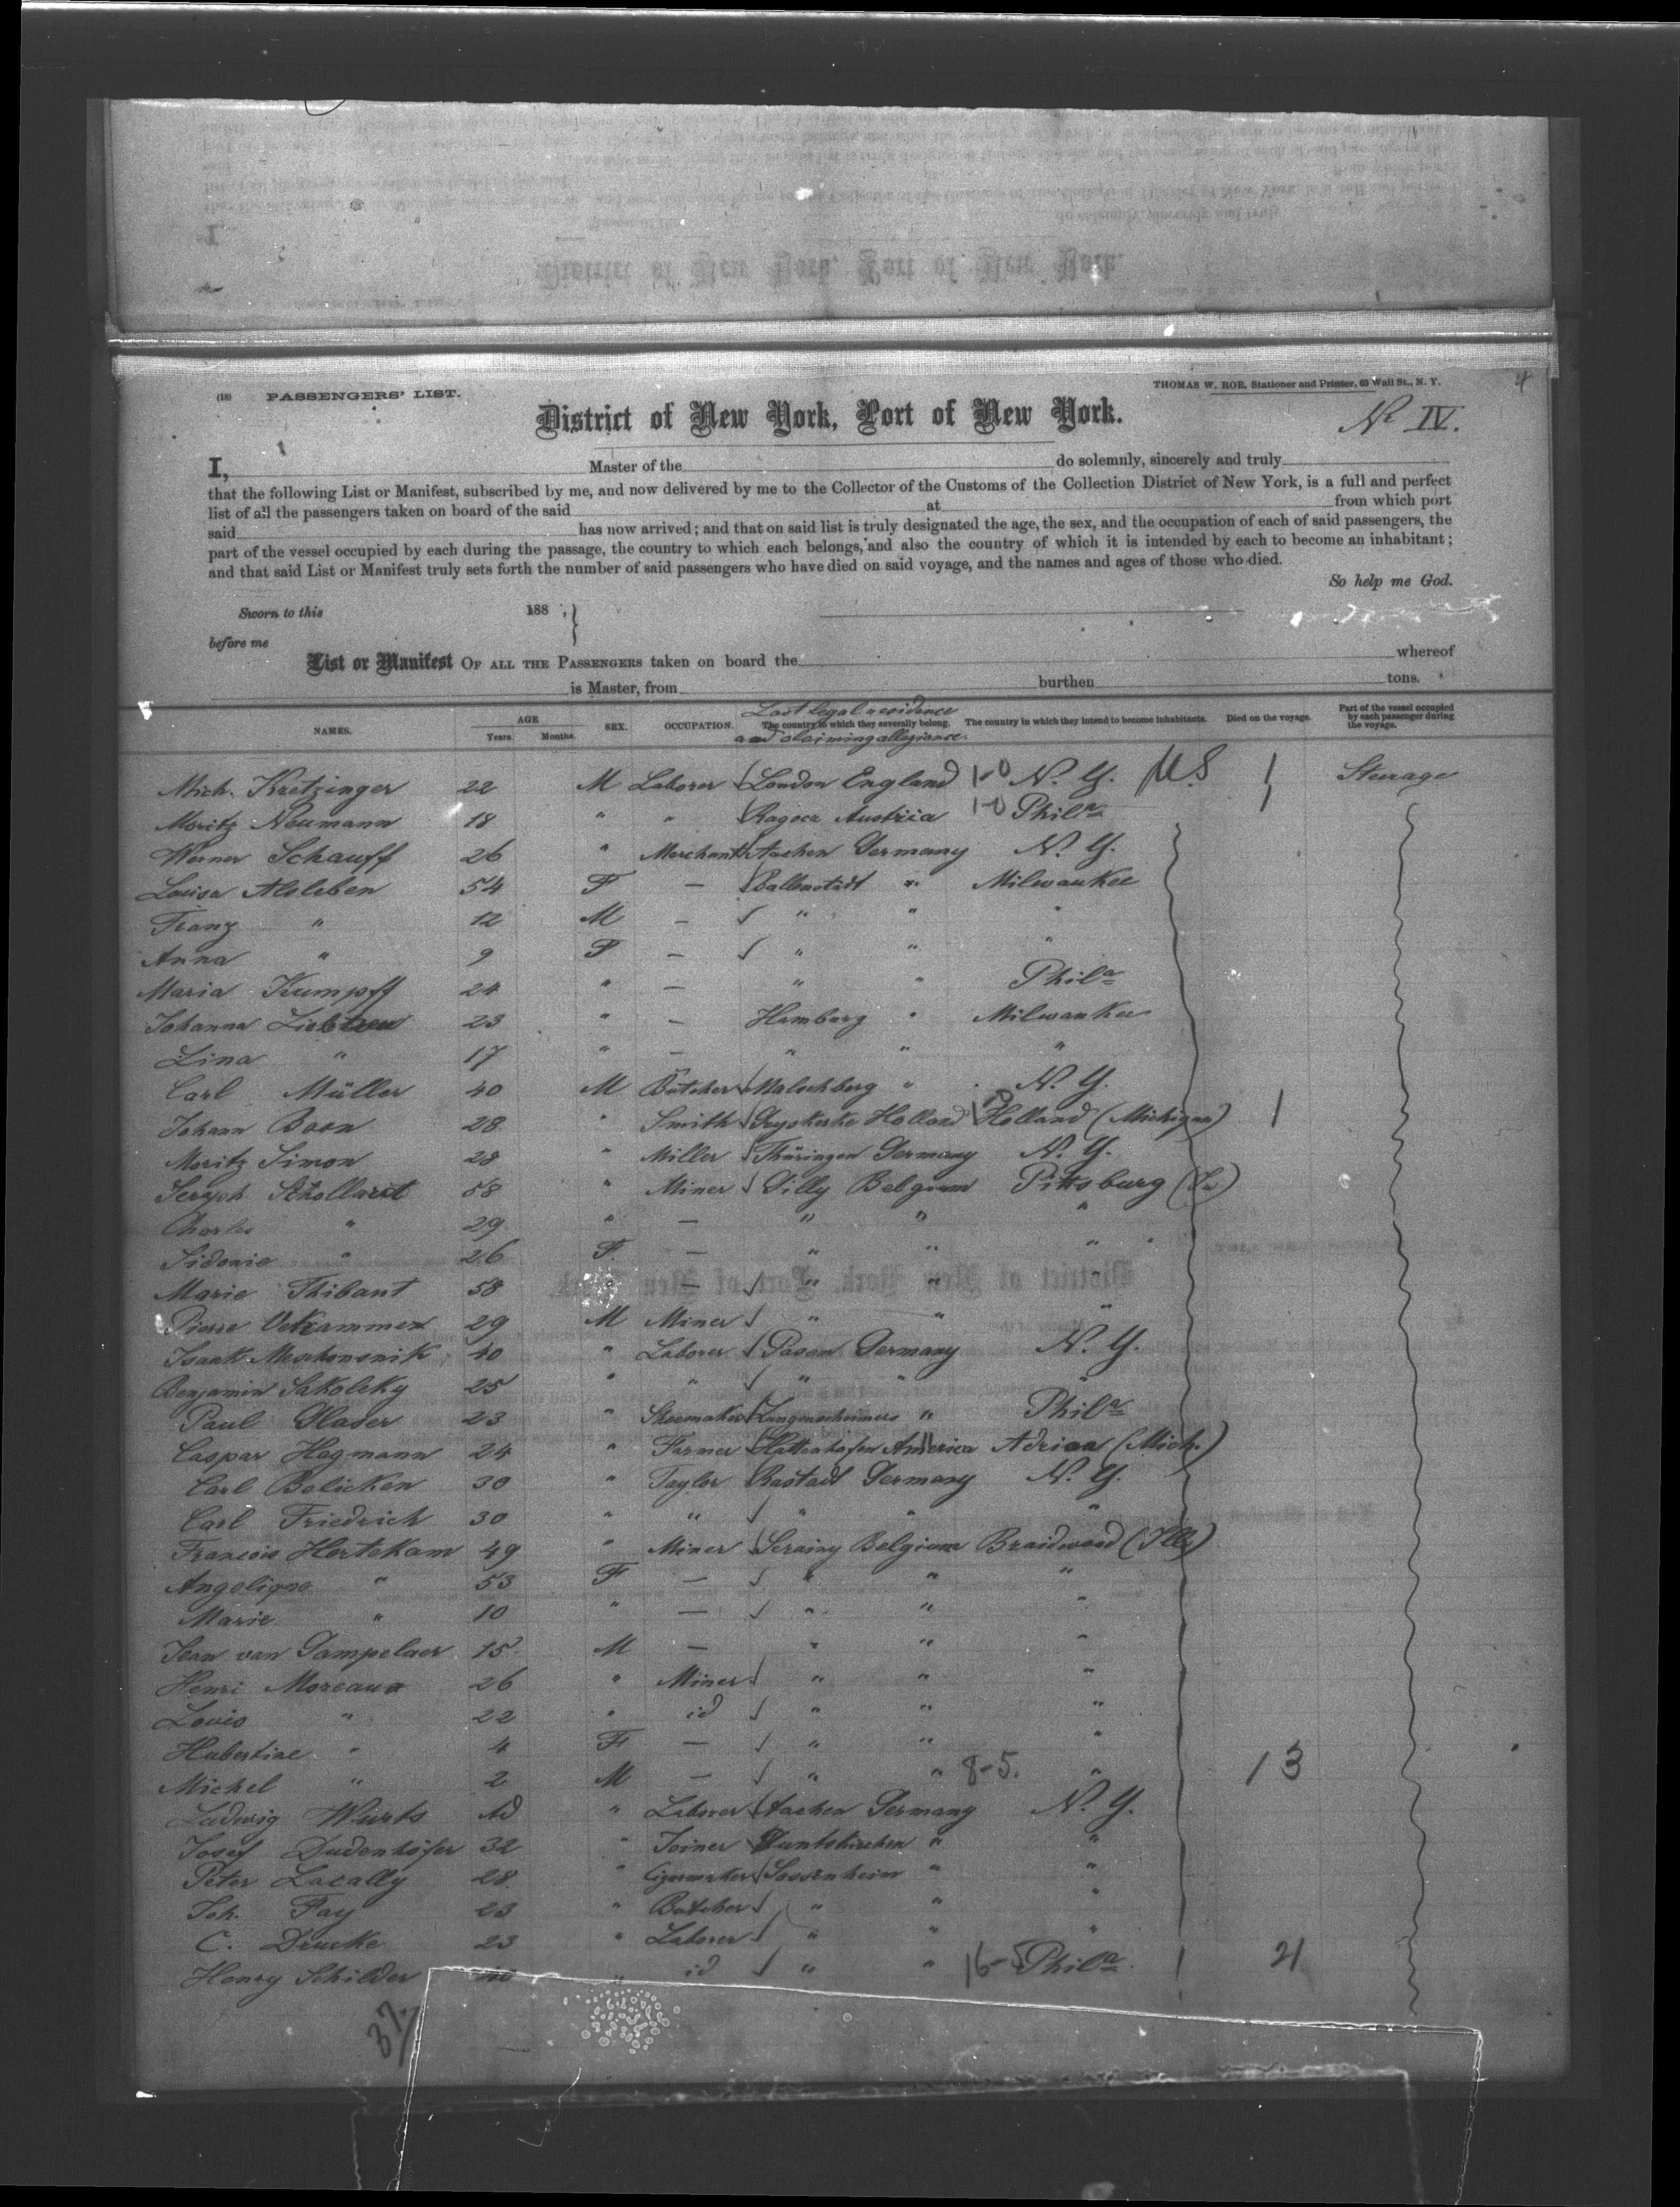 4
(18) PASSENGERS' LIST. THOMAS W. ROE, Stationer and Printer, 63 Wall St., N. Y.
District of New York, Port of New York. No IV.
I, Master of the do solemnly, sincerely and truly
that the following List or Manifest, subscribed by me, and now delivered by me to the Collector of the Customs of the Collection District of New York, is a full and perfect
list of all the passengers taken on board of the said at from which port
said has now arrived; and that on said list is truly designated the age, the sex, and the occupation of each of said passengers, the
part of the vessel occupied by each during the passage, the country to which each belongs, and also the country of which it is intended by each to become an inhabitant;
and that said List or Manifest truly sets forth the number of said passengers who have died on said voyage, and the names and ages of those who died.
So help me God.
Sworn to this 188 ,
before me
List or Manifest OF ALL THE PASSENGERS taken on board the whereof
is Master, from burthen tons.
NAMES. AGE Years Months. SEX. OCCUPATION. Last legal residence The country to which they severally belong. and claiming allegiance. The country in which they intend to become inhabitants. Died on the voyage. Part of the vessel occupied by each passenger during the voyage.
Mich. Kretzinger 22 M Laborer London England 1-0 N. Y. US 1 Steerage
Moritz Neumann 18 " " Austria 1-0 Phila
Werner Schauff 26 " Merchant Aachen Germany N. Y.
Louisa Alsleben 54 F — Ballenstadt " Milwaukee
Franz " 12 M — " " "
Anna " 9 F — " " "
Maria Kumpff 24 " — " " Phila
Johanna 23 " — Hamburg " Milwaukee
Lina " 17 " — " " "
Carl Müller 40 M Butcher Malschberg " N. Y.
Johann Boon 28 " Smith Holland Holland (Michigan) 1
Moritz Simon 28 " Miller Thüringen Germany N. Y.
Joseph 58 " Miner Gilly Belgium Pittsburg
Charles " 29 " — " " "
Sidonie " 26 F. — " " "
Marie Thibant 58 — " "
Pierre 29 M Miner " " "
Isaak 40 " Laborer Posen Germany N. Y.
Benjamin Sakolsky 25 " " " " "
Paul Glaser 23 " Shoemaker " Phila
Caspar Hagmann 24 " Farmer Hattenhofen America Adrian (Mich.)
Carl Belicken 30 " Taylor Rastadt Germany N. Y.
Carl Friedrich 30 " " " " "
Francois Hertekam 49 " Miner Seraing Belgium Braidwood (Ills)
Angelique " 53 F — " " "
Marie " 10 " — " " "
Jean van Gampelaer 15 M — " " "
Henri Moreaux 26 " Miner " " "
Louis " 22 " id " " "
Hubertine " 4 F — " " "
Michel " 2 M — " " 8-5. " 13
Ludwig Wurts " Laborer Aachen Germany N. Y.
Josef Dudenhöfer 32 " Joiner " "
Peter Lacally 28 " Cigarmaker Sossenheim " "
Joh. Fay 23 " Butcher " " "
C. Drucke 23 " Laborer " " "
Henry Schilder " id " " 16-5 Phila 21
37